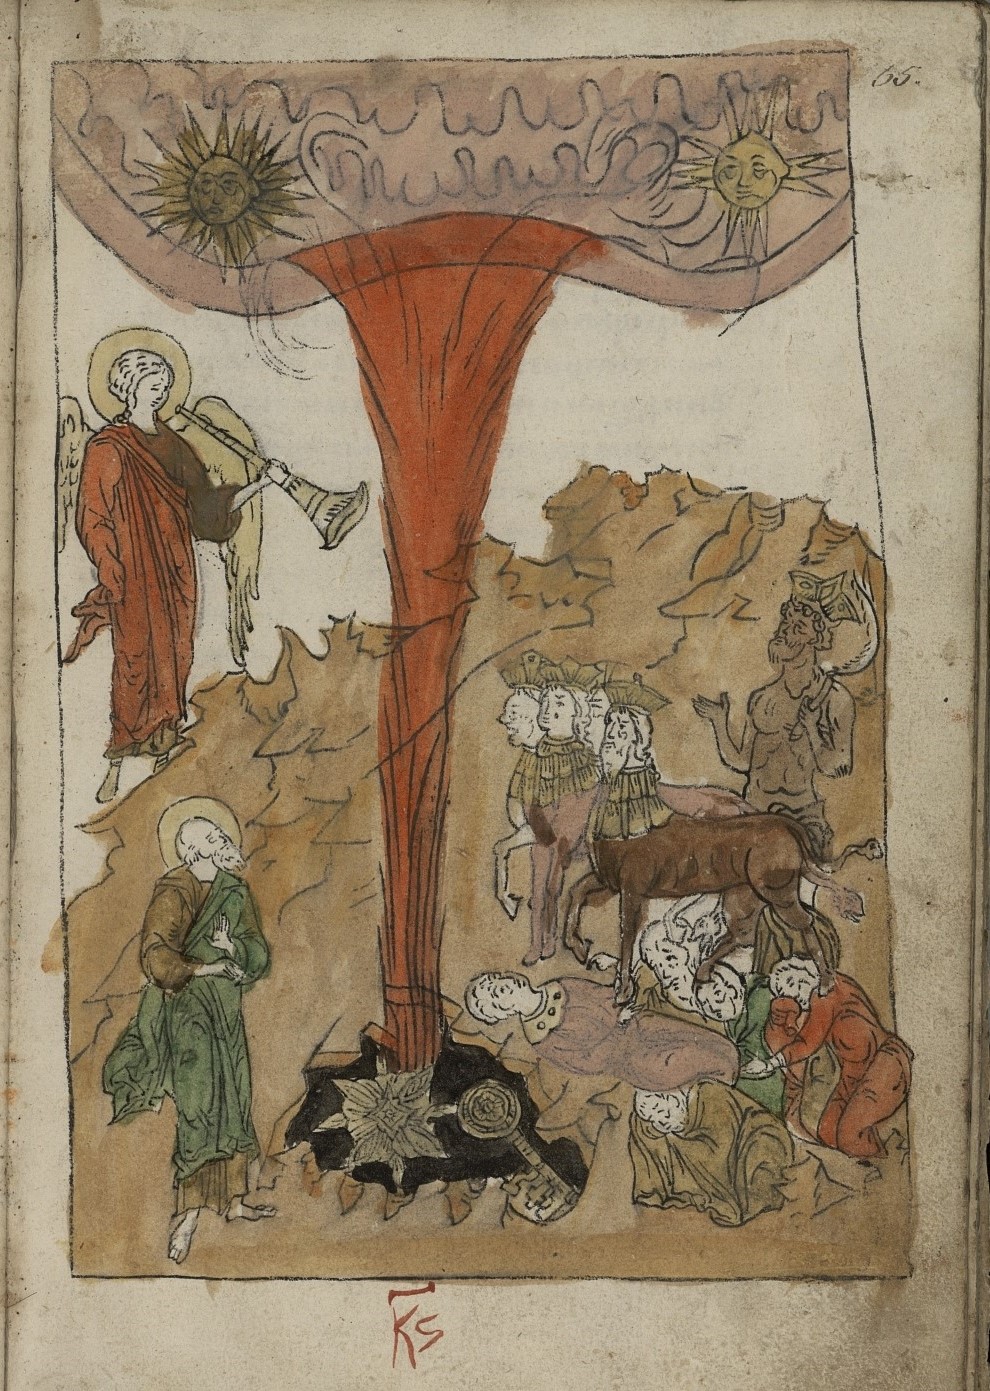 65.
К҃ѕ